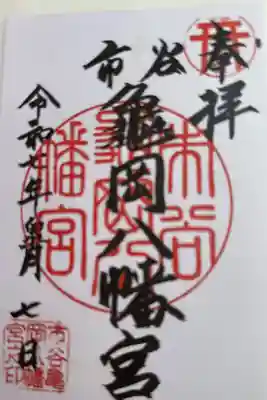 奉拝
市谷
龜岡八幡宮
令和七年月七日
市谷
龜岡八
幡宮
市谷亀
岡八幡
宮之印